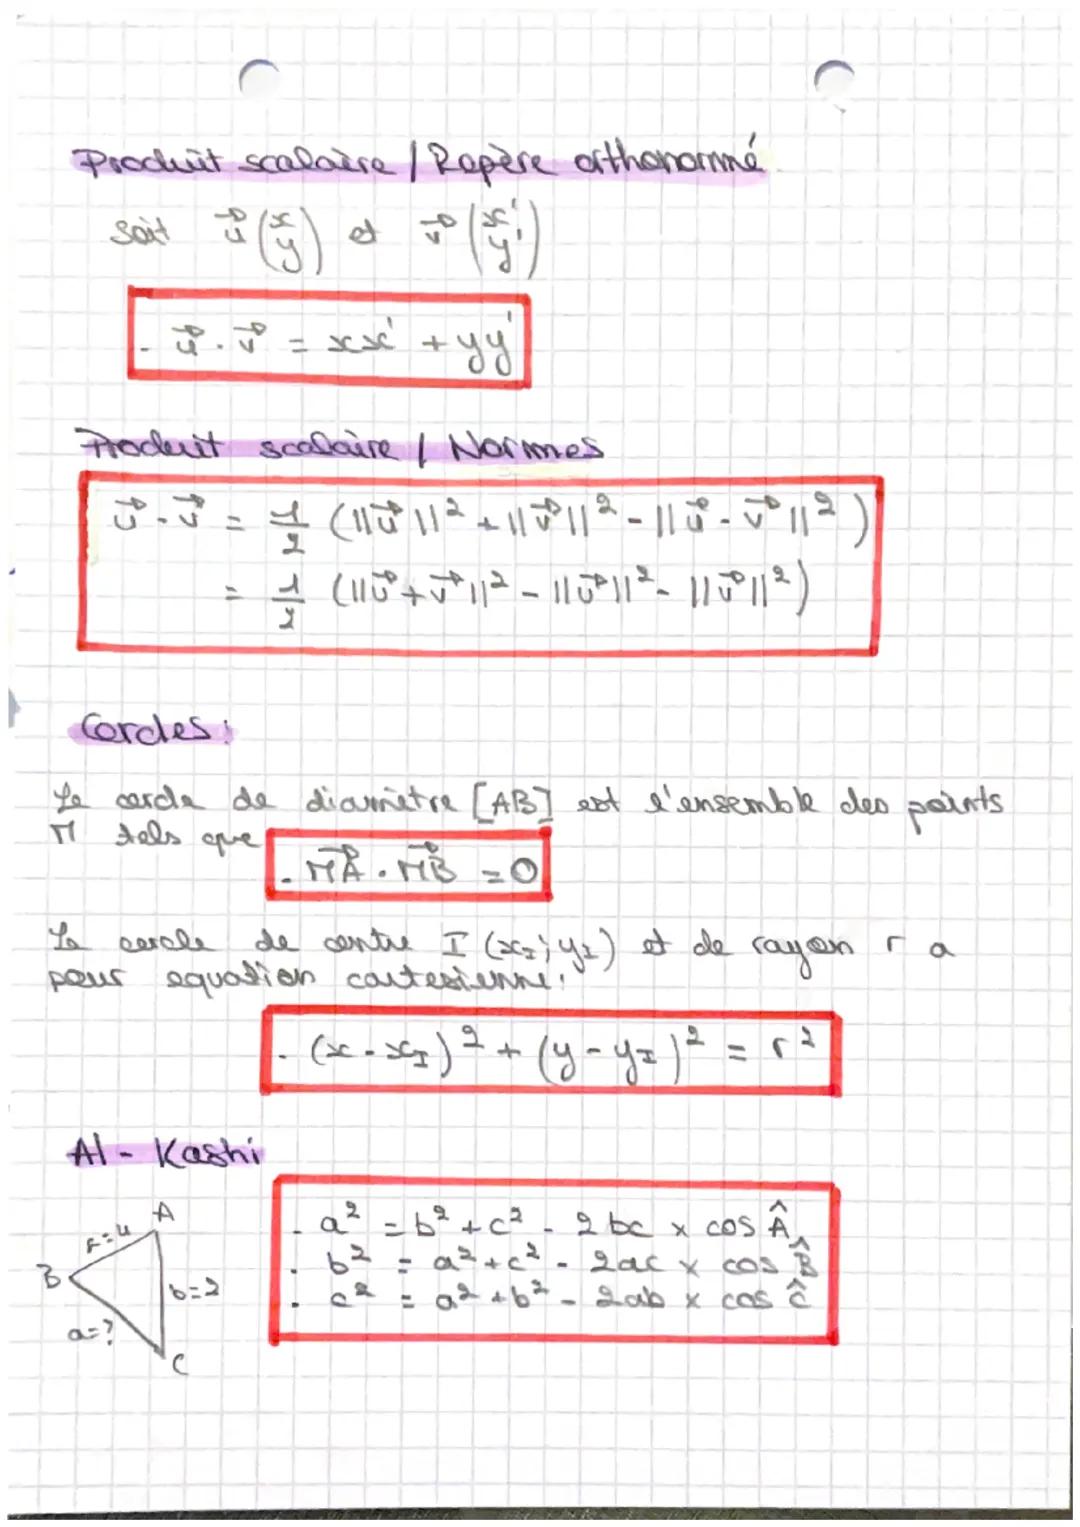 Produit scalaire / Repère orthonormé
Soit u⃗ (x y) et v⃗ (x' y')
- u⃗ . v⃗ = xx' + yy'
Produit scalaire / Normes
u⃗ . v⃗ = 1/2 (||u⃗||² + ||v⃗||² - ||u⃗ - v⃗||²)
= 1/2 (||u⃗ + v⃗||² - ||u⃗||² - ||v⃗||²)
Cercles :
Le cercle de diamètre [AB] est l'ensemble des points
M tels que
- MA⃗ . MB⃗ = 0
Le cercle de centre I (x_I ; y_I) et de rayon r a
pour equation cartesienne :
- (x - x_I)² + (y - y_I)² = r²
Al - Kashi
- a² = b² + c² - 2bc × cos Â
- b² = a² + c² - 2ac × cos B̂
- c² = a² + b² - 2ab × cos Ĉ
A
B
b=2
a=?
C